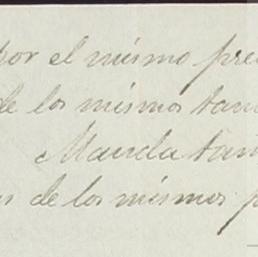 por el mismo pre
de los mismos tam
Manda tam
s de los mismos p